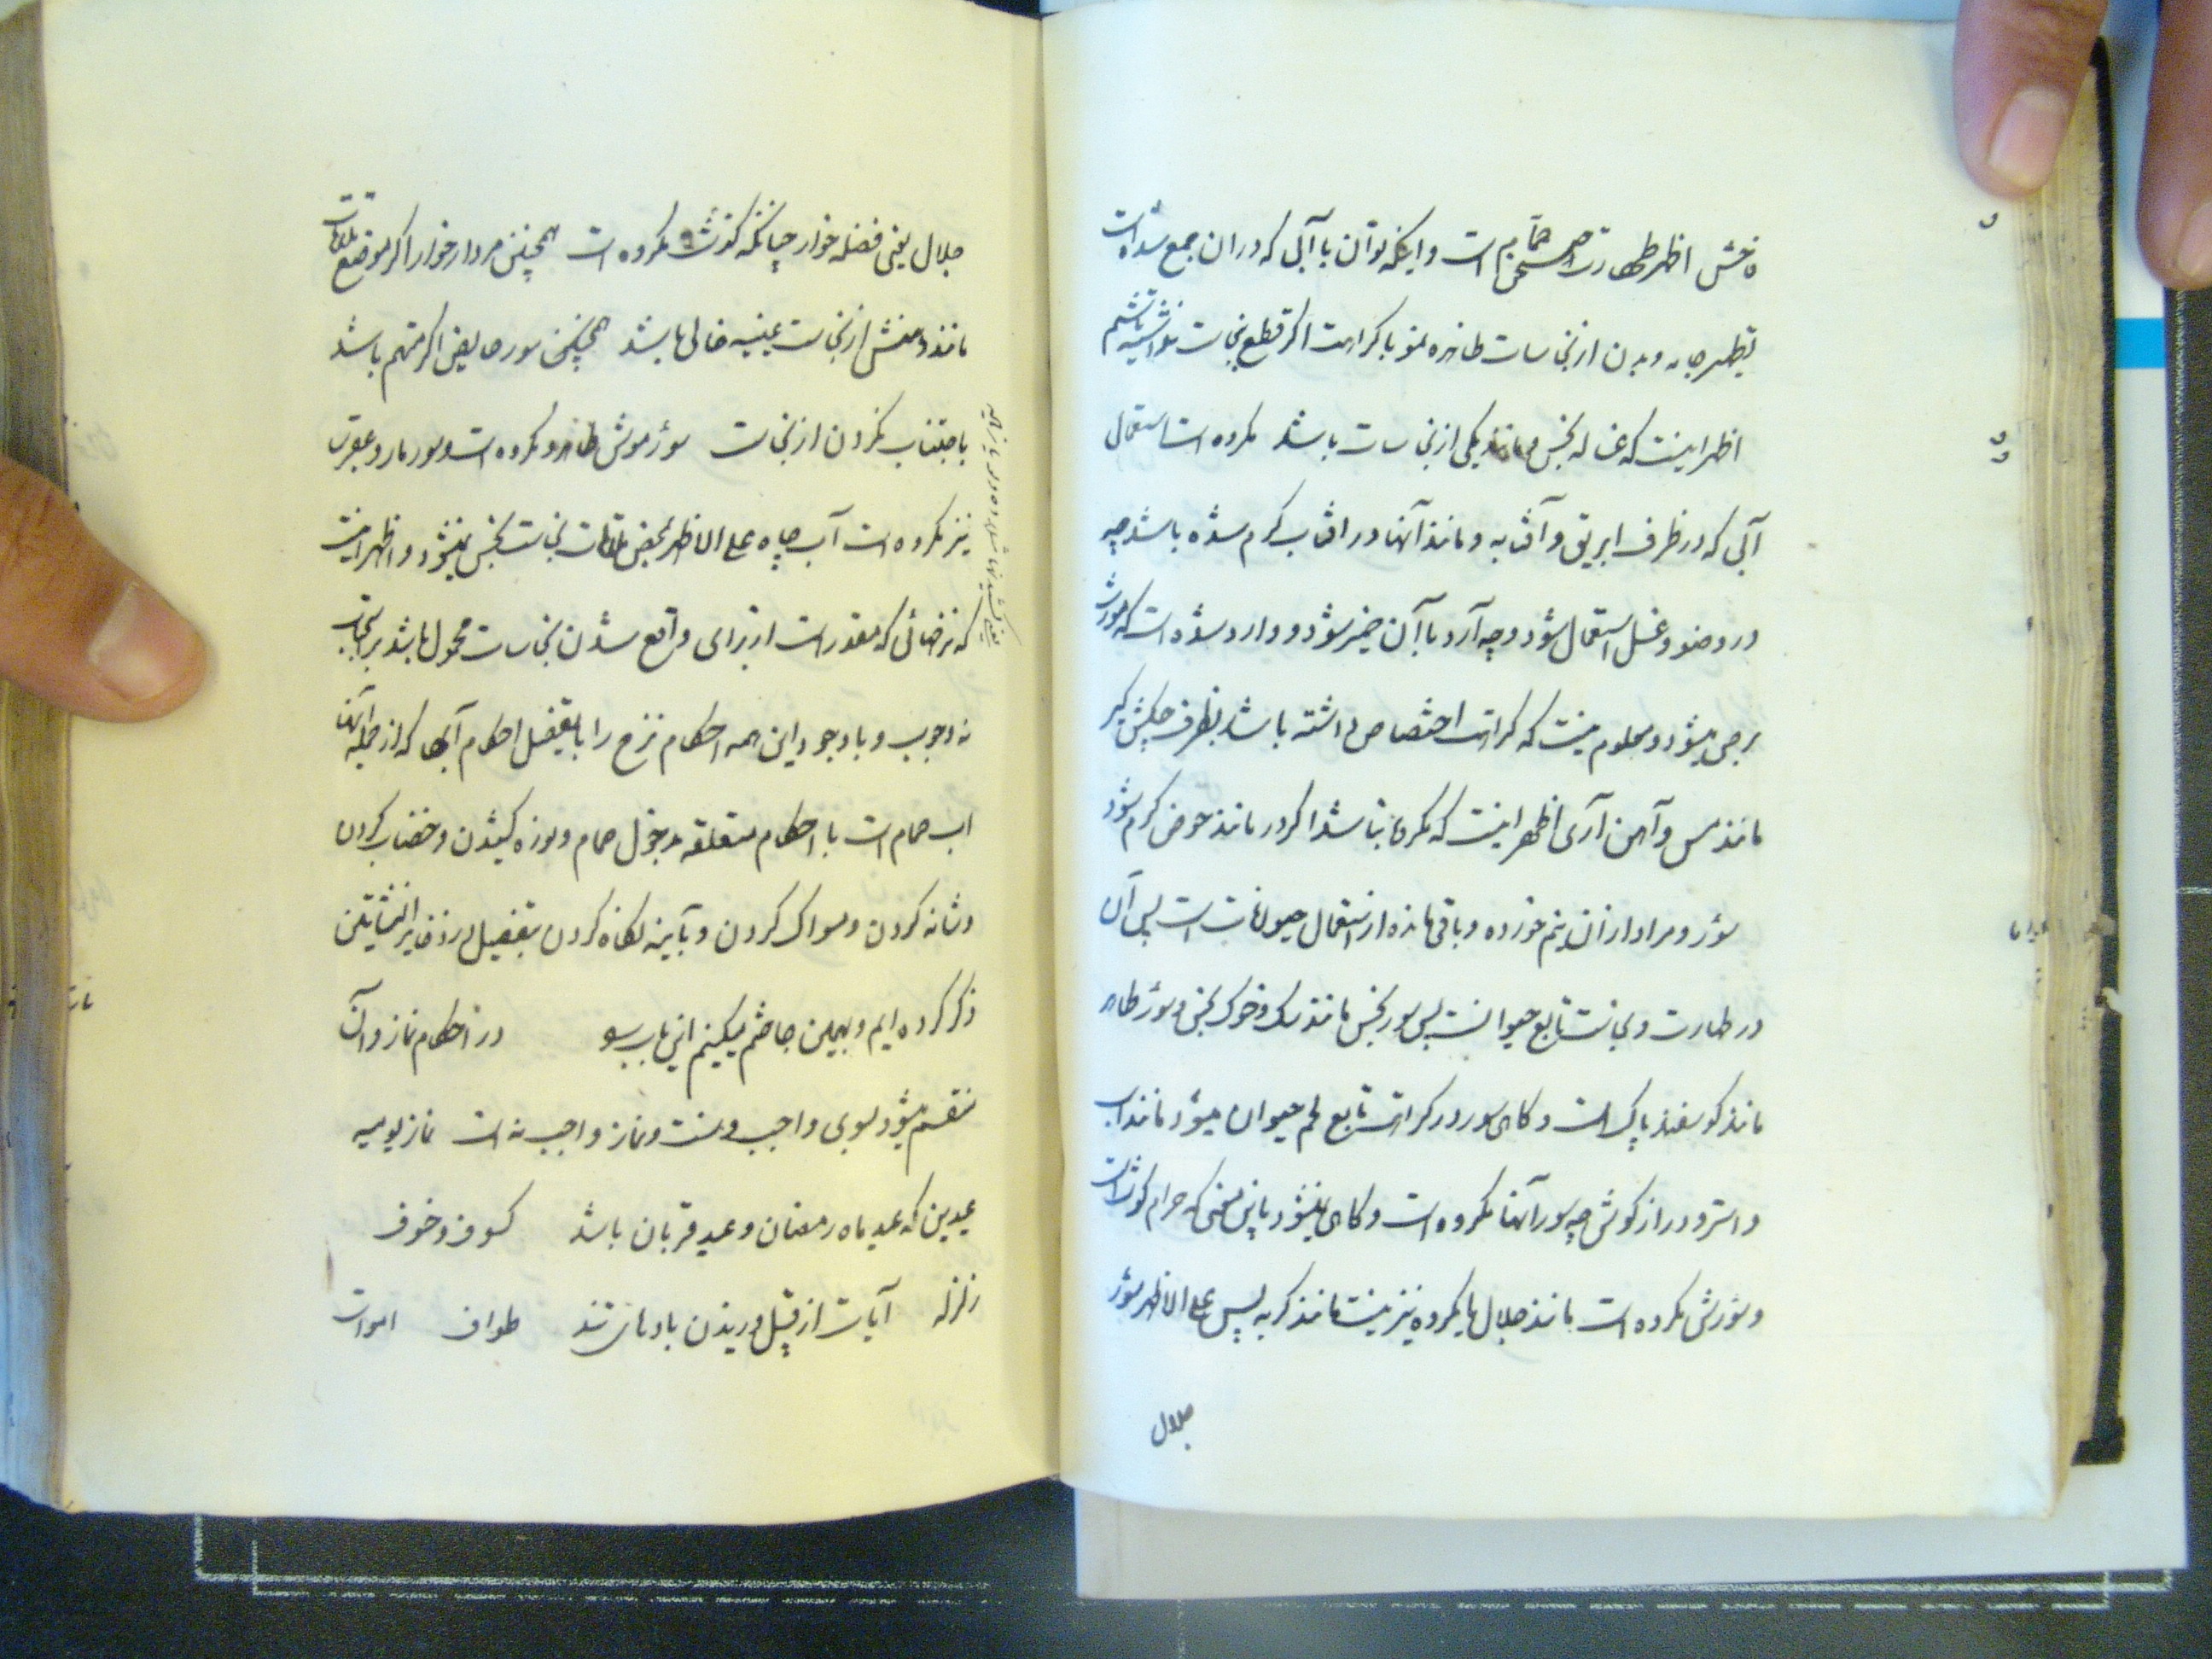 اظهر طهارت است و اینکه توان با آبی که در ان جمع شده است
تطهیر جامه و بدن از نجاسات ظاهره نمود با کراهت اگر قطع بنجاست نداشته باشیم
اظهر اینست که غساله نجس مانند یکی از نجاسات باشد مکروه است استعمال
آبی که در ظرف ابریق و آفتابه و مانند آنها در افتاب گرم شده باشد چه
در وضو و غسل استعمال شود و چه آرد با آن خمیر شود و وارد شده است که مورث
برص میشود و معلوم نیست که کراهت اختصاص داشته باشد بظرف چکش گیر
مانند مس و آهن آری اظهر اینست که مکروه نباشد اگر در مانند حوض گرم شود
سؤر و مراد از ان نیم خورده و باقی مانده از استعمال حیوانات است پس آن
در طهارت و نجاست تابع حیوانست پس سور نجس مانند سک و خوک نجس و سؤر طاهر
مانند کوسفند پاک است و کاهی سور در کراهت تابع لحم حیوان میشود مانند اسب
و استر و دراز کوش چه سور آنها مکروه است و کاهی نمیشود باین معنی که حرام کوشت است
و سورش مکروه است مانند جلال یا مکروه نیز نیست مانند کربه پس علی الاظهر سؤر
جلال
جلال یعنی فضله خوار چنانکه کذشت مکروه است همچنین مردار خوار اکر موضع ملاقات
مانند دهنش از نجاست عینیه خالی باشد همچنین سور حایض اکر متهم باشد
باجتناب نکردن از نجاست سؤر موش طاهر و مکروه است و سور مار و عقرب
نیز مکروه است آب چاه علی الاظهر بمحض ملاقات نجاست نجس نمیشود و اظهر اینست
که نزحهائی که مقدر است از برای واقع شدن نجاسات محمول باشد بر استحباب
نه وجوب و با وجود این همه احکام نزح را با تفصیل احکام آبها که از جمله آنها
اب حمام است با احکام متعلقه بدخول حمام و نوره کشیدن و خضاب کردن
و شانه کردن و مسواک کردن و بآینه نکاه کردن بتفصیل در ذخایر النشأتین
ذکر کرده ایم و بهمین جا ختم میکنیم این باب در احکام نماز و آن
منقسم میشود بسوی واجب و سنت و نماز واجب نه است نماز یومیه
عیدین که عید ماه رمضان و عید قربان باشد کسوف و خسوف
زلزله آیات از قبیل وزیدن بادهای تند طواف اموات